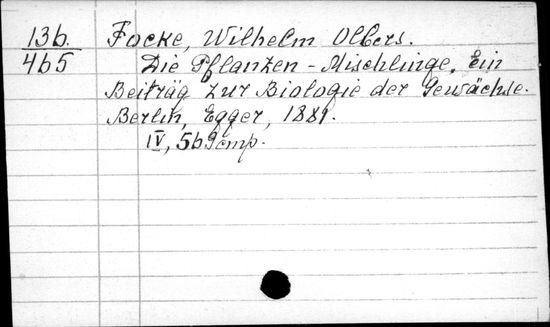 136. Focke, Wilhelm Olbers.
465 Die Pflanzen-Mischlinge. Ein
Beiträg zur Biologie der Gewächse.
Berlin, Egger, 1881.
IV, 569 cmp.